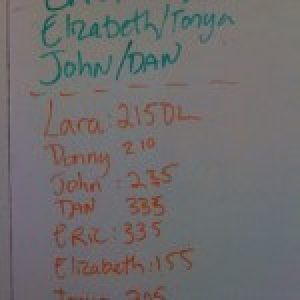 Elizabeth/Tonya
John/DAN
Lara: 215DL
Donny 210
John: 235
DAN 335
ERIC: 335
Elizabeth: 155